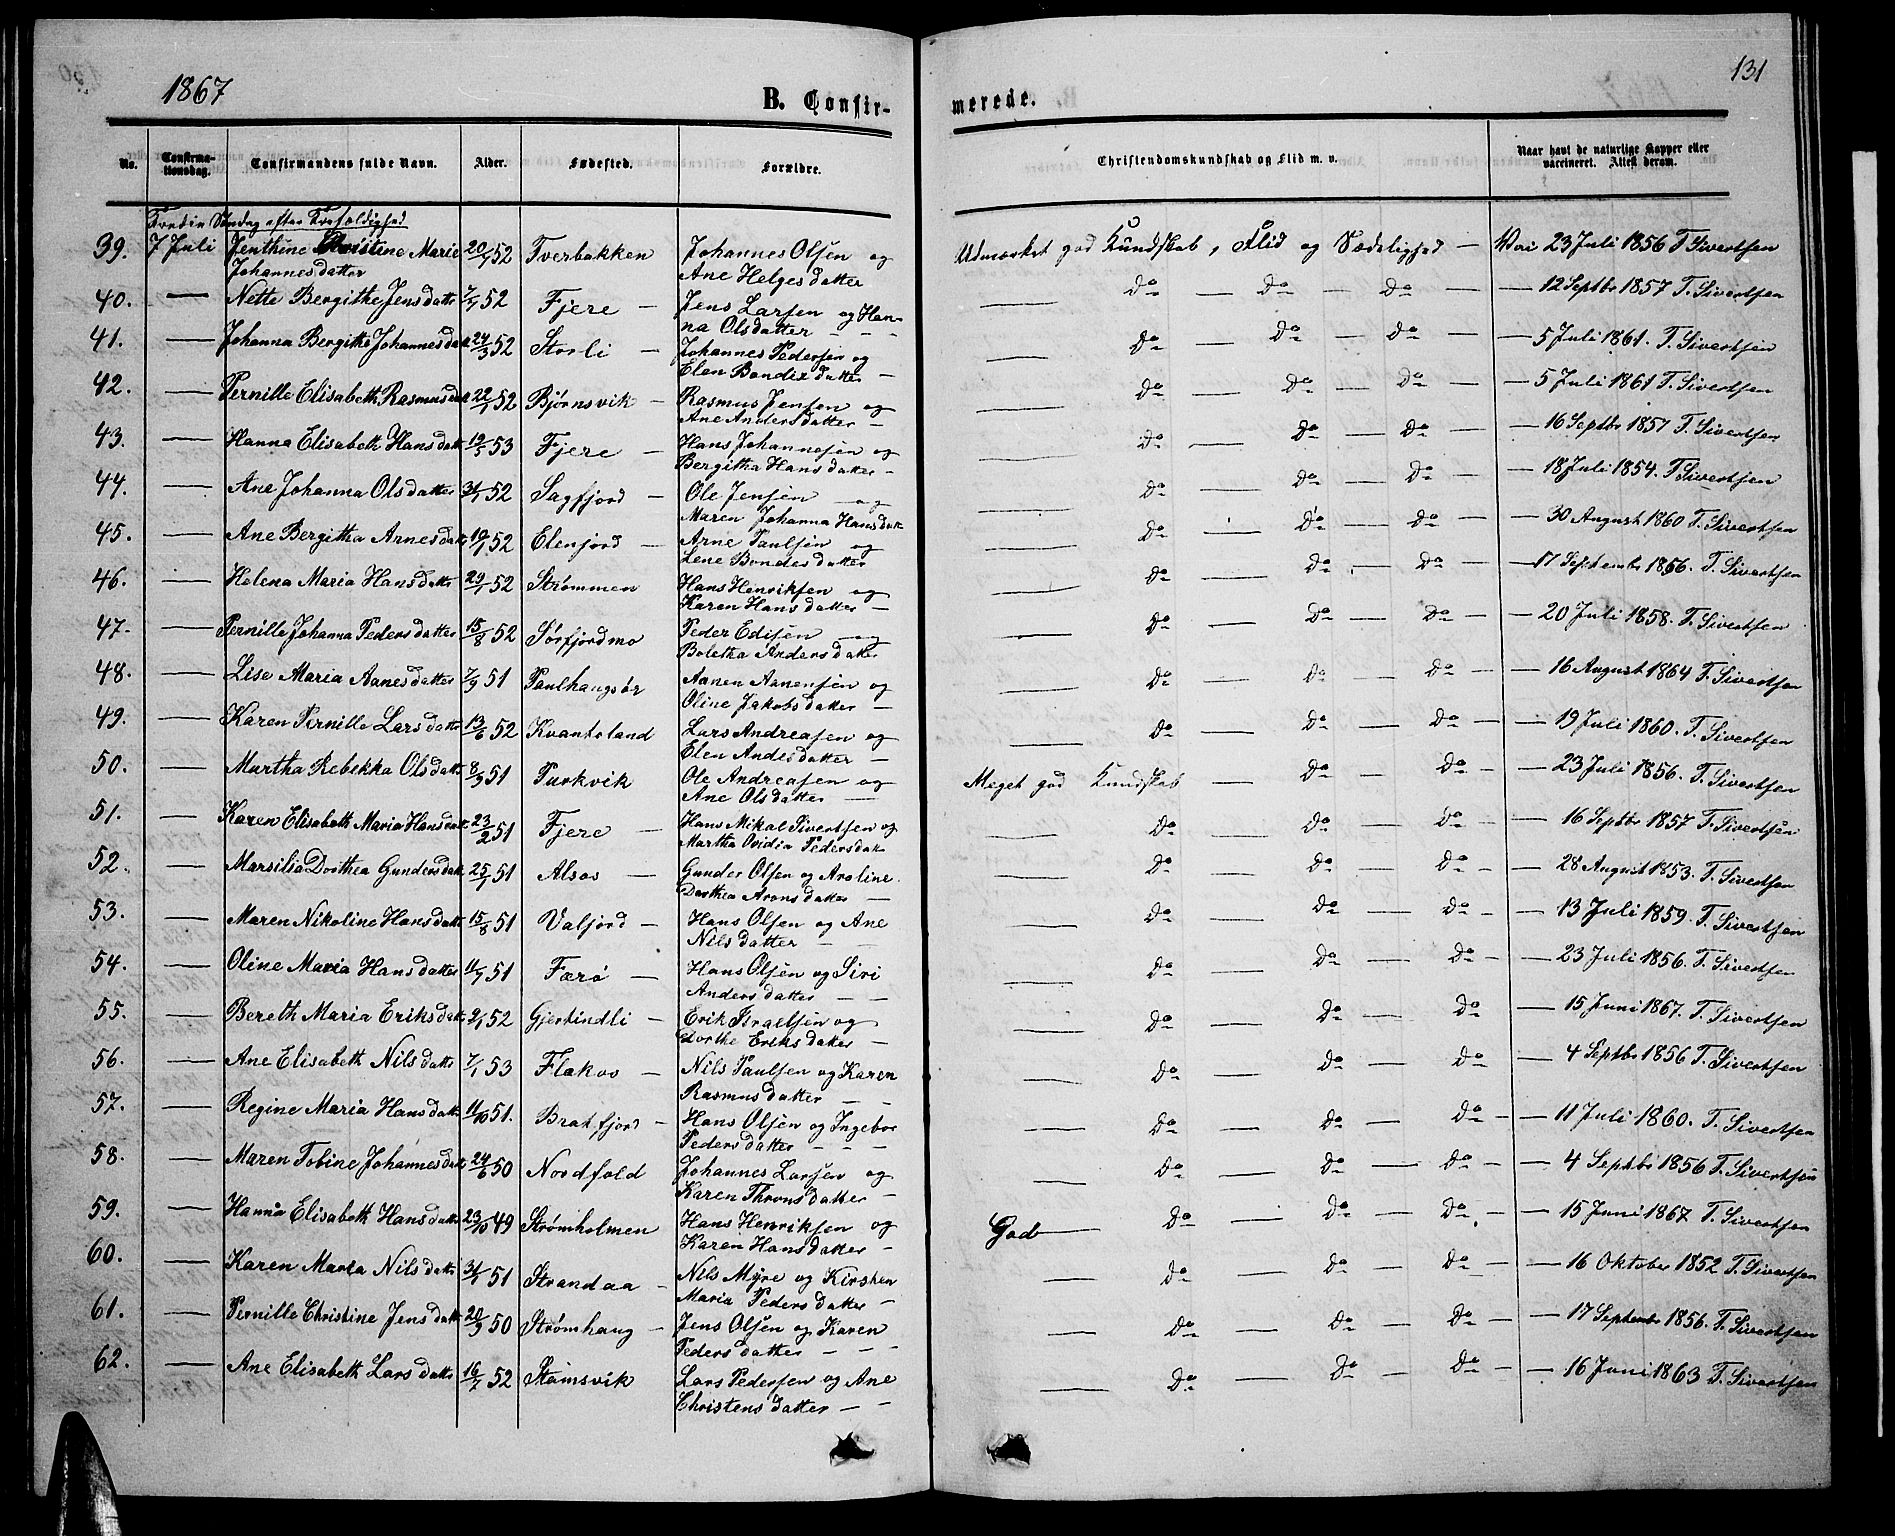 1867
131
B. Confir-
merede.
No.
Confirma-
tionsdag.
Confirmandens fulde Navn.
Alder.
Fødested.
Forældre.
Christendomskundskab og Flid m. v.
Naar havt de naturlige Kopper eller
vaccineret. Attest derom.
Tredie Søndag efter Trefoldighed
39. 7 Juli Jenthine Christine Marie 52 Tverbakken Johannes Olsen og Udmærket god Kundskab, Flid og Sædelighed — 23 Juli 1856 T. Sivertsen
Johannesdatter Ane Helgesdatter
40. — Nette Bergithe Jensdatt 52 Fjere — Jens Larsen og Han- — Do — Do — Do — — 12 Septbr 1857 T. Sivertsen
na Olsdatter — —
41. — Johanna Bergitte Johannesdat 24/3 52 Storli — Johannes Pedersen og — Do — Do — Do — — 5 Juli 1861. T. Sivertsen
Elen Bendixdatter —
42. — Pernille Elisabeth Rasmusdat 22/1 52 Bjørnsvik — Rasmus Jensen og — Do — Do — Do — — 5 Juli 1861 T. Sivertsen
Ane Andersdatter —
43. — Hanna Elisabeth Hansdatt 53 Fjere — Hans Johannesen og — Do — Do — Do — — 16 Septbr 1857 T. Sivertsen
Bergitha Hansdatter —
44. — Ane Johanna Olsdatter 52 Sagfjord — Ole Jensen — og — Do — Do — Do — — 18 Juli 1854. T. Sivertsen
Maren Johanna Hansdatt
45. — Ane Bergitha Arnesdatt 52 Elenfjord — Arne Paulsen og — Do — Do — Do — — 30 August 1860 T. Sivertsen
Lene Bendesdatter
46. — Helena Maria Hansdatt 52 Strømmen Hans Henriksen og — Do — Do — Do — — 17 September 1856. T. Sivertsen
Karen Hansdatter —
47. — Pernille Johanna Pedersdatter 15/8 52 Sørfjordmo Peder Edisen — og — Do — Do — Do — — 20 Juli 1858. T. Sivertsen
Boletha Andersdatter
48. — Lise Maria Aanesdatter 7/9 51 Paulhangsør Aanen Aanensen og — Do — Do — Do — — 16 August 1864 T. Sivertsen
Oline Jakobsdatter —
49. — Karen Pernille Larsdatt 13/6 52 Kvantoland Lars Andreasen og — Do — Do — Do — — 19 Juli 1860. T. Sivertsen
Elen Andersdatter —
50. — Martha Rebekka Olsdatt 8/9 51 Purkvik Ole Andreasen og Meget god Kundskab — Do — Do — — 23 Juli 1856. T. Sivertsen
Ane Olsdatter —
51. — Karen Elisabeth Maria Hansdatt 23/2 51 Fjere — Hans Mikal Sivertsen og — Do — Do — Do — — 16 Septbr 1857 T. Sivertsen
Martha Ovidia Pedersdatt
52. — Marsilia Dorthea Gundersdatt 25/1 51 Alsos — Gunder Olsen og Aroline — Do — Do — Do — — 28 August 1853. T. Sivertsen
Dorthea Aronsdatter —
53. — Maren Nikoline Hansdatt 15/8 51 Valjord — Hans Olsen og Ane — Do — Do — Do — — 13 Juli 1859. T. Sivertsen
Nilsdatter — —
54. — Oline Maria Hansdatter 51 Færø — Hans Olsen og Siri — Do — Do — Do — — 23 Juli 1856. T. Sivertsen
Andersdatter — —
55. — Bereth Maria Eriksdatt 2/1 52 Gjertindli — Erik Israelsen og — Do — Do — Do — — 15 Juni 1867. T. Sivertsen
Dorthe Eriksdatter —
56. — Ane Elisabeth Nilsdatt 7/1 53 Flakos — Nils Paulsen og Karen — Do — Do — Do — — 4 Septbr 1856 T. Sivertsen
Rasmusdatter — —
57. — Regine Maria Hansdatt 11/10 51. Bratfjord — Hans Olsen og Ingebor — Do — Do — Do — — 11 Juli 1860. T. Sivertsen
Pedersdatter — — —
58. — Maren Tobine Johannesdatt 24/6 50 Nordfold Johannes Larsen og — Do — Do — Do — — 4 Septbr 1856 T. Sivertsen
Karen Thronsdatter —
59. — Hanna Elisabeth Hansdatt 23/10 49 Strømholmen Hans Henriksen og God — Do — Do — Do — — 15 Juni 1867 T. Sivertsen
Karen Hansdatter —
60. — Karen Maria Nilsdatt 51 Strandaa — Nils Myre og Kirsten — Do — Do — Do — — 16 Oktober 1852 T. Sivertsen
Maria Pedersdatter —
61. — Pernille Christine Jensdatt 20/9 50 Strømhaug — Jens Olsen og Karen — Do — Do — Do — — 17 September 1856. T. Sivertsen
Pedersdatter — — —
62. — Ane Elisabeth Larsdatt 16/7 52 Stamsvik Lars Pedersen og Ane — Do — Do — Do — — 16 Juni 1863 T. Sivertsen
Christensdatter — —